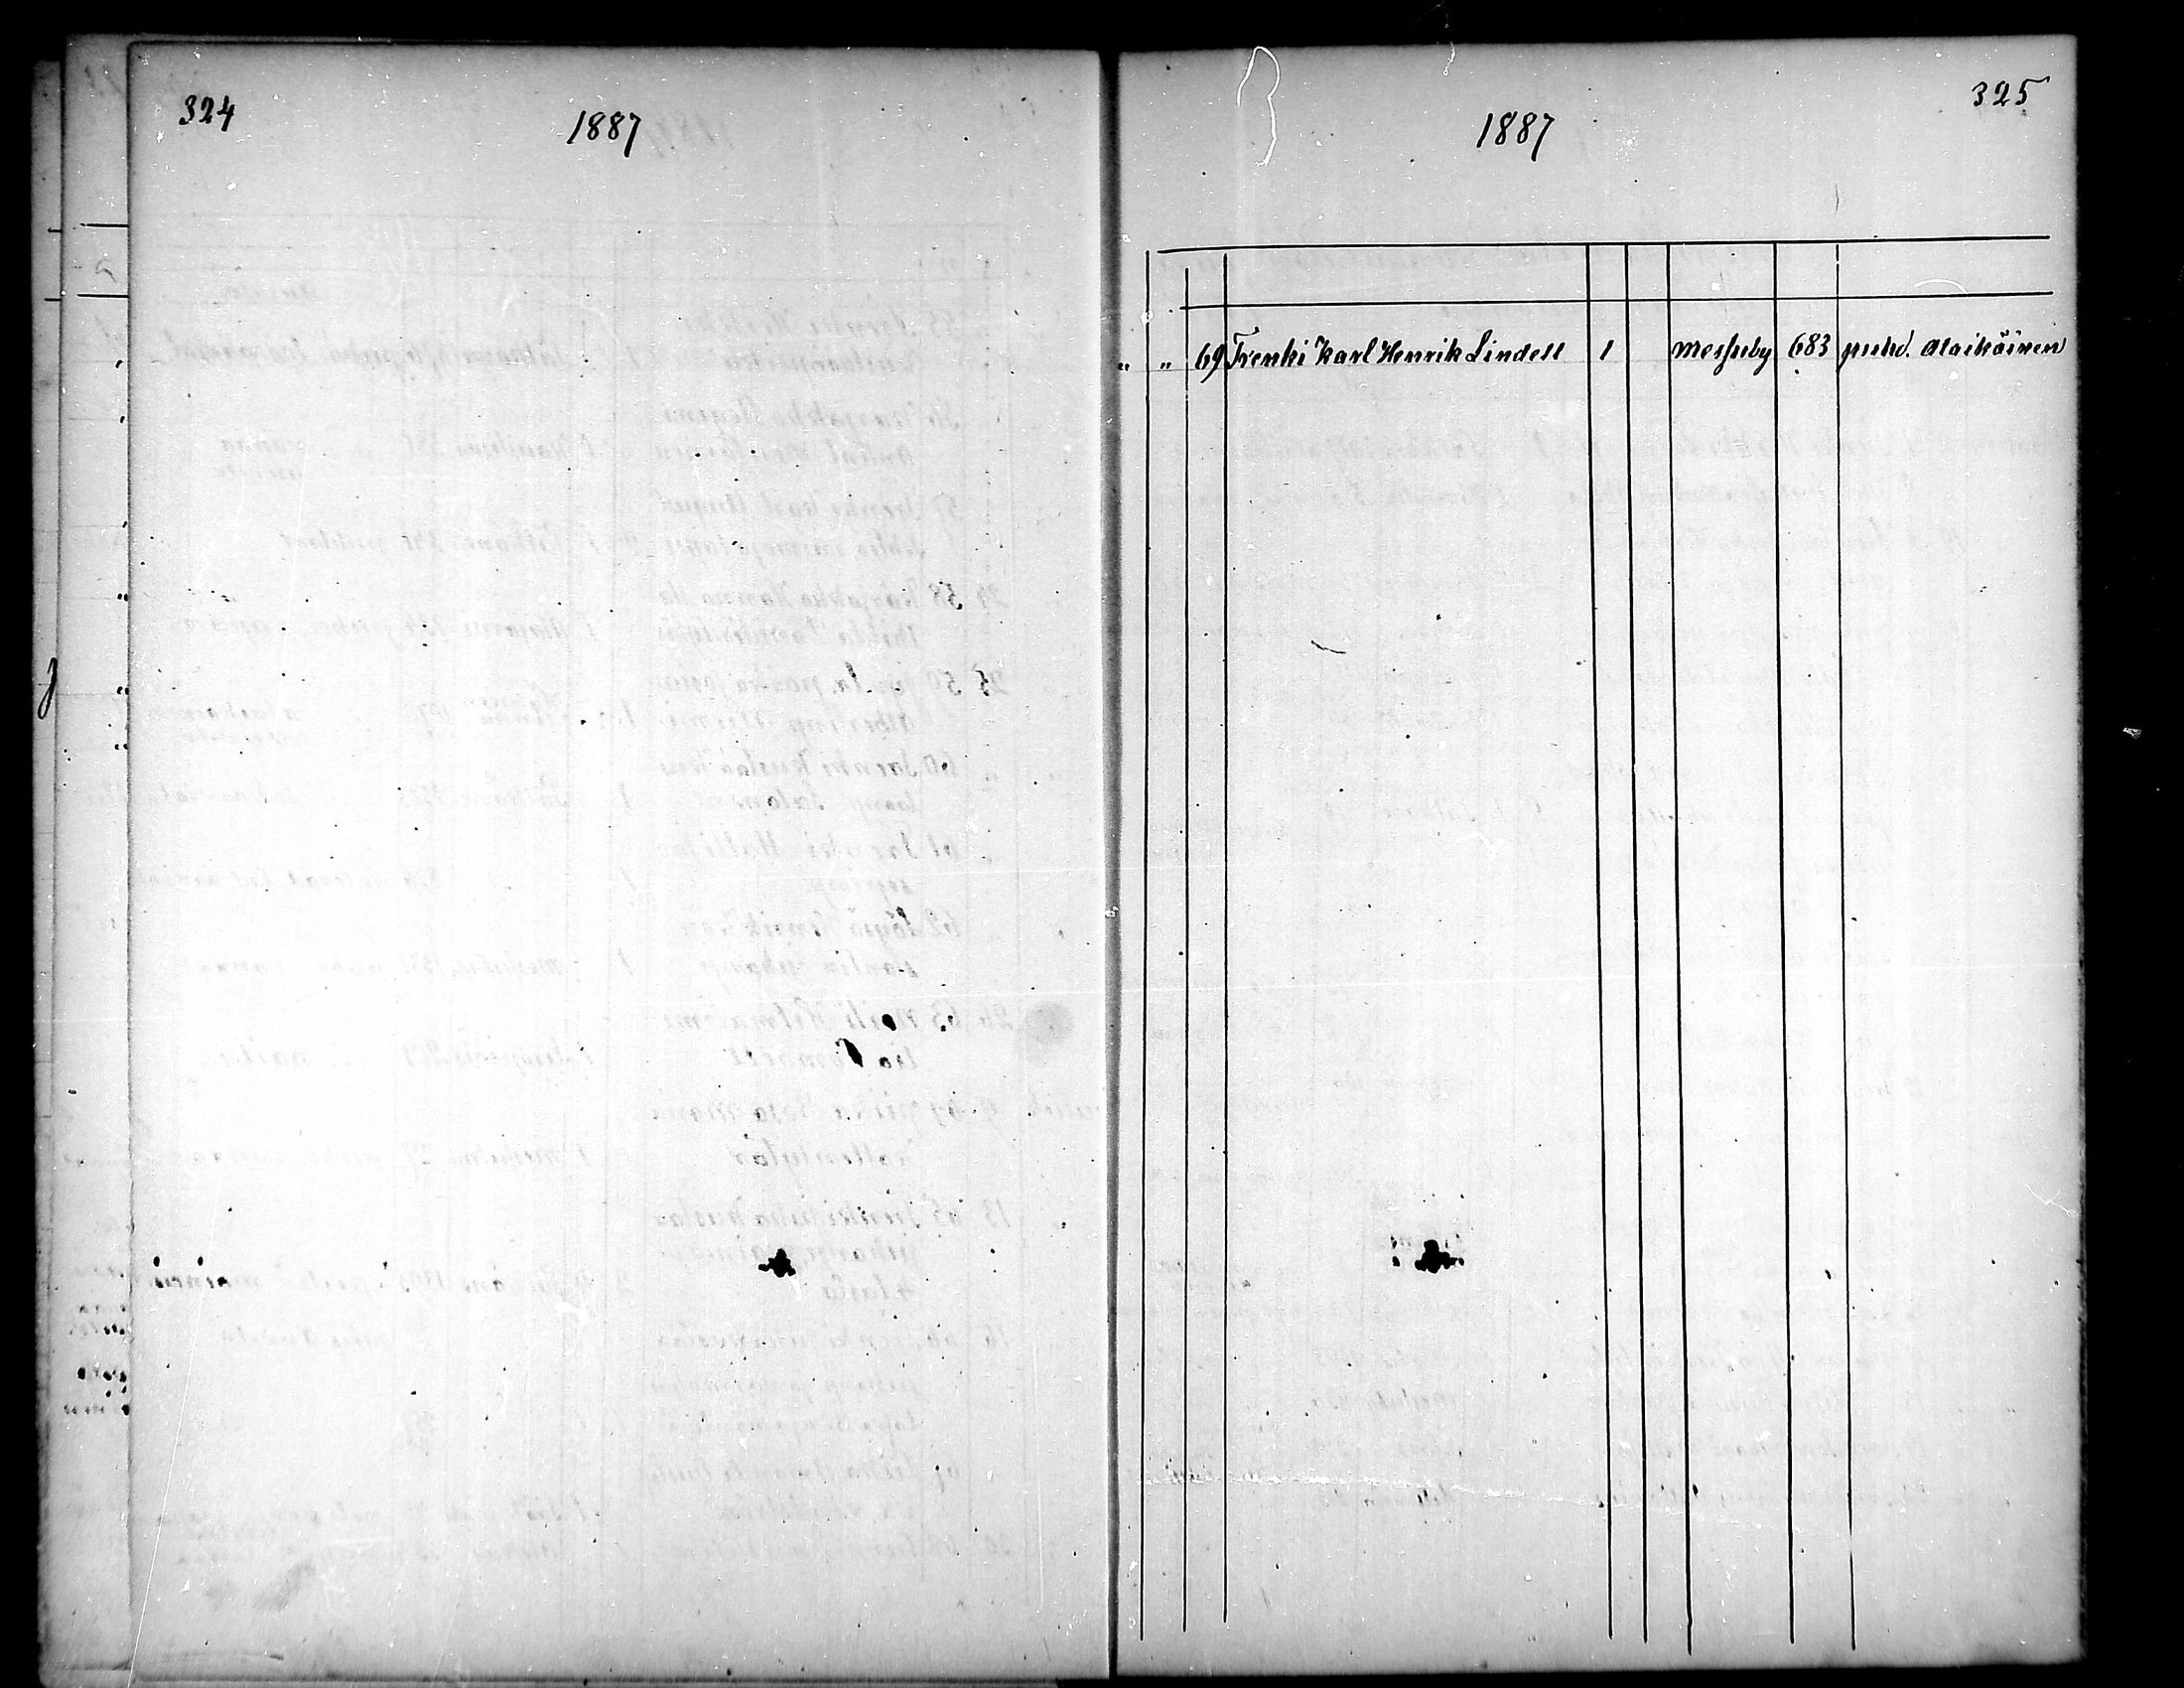 324
1887
325
1887
" " 69 Trenki Karl Henrik Lindell 1 Messuby 683 puhd. alaikäinen